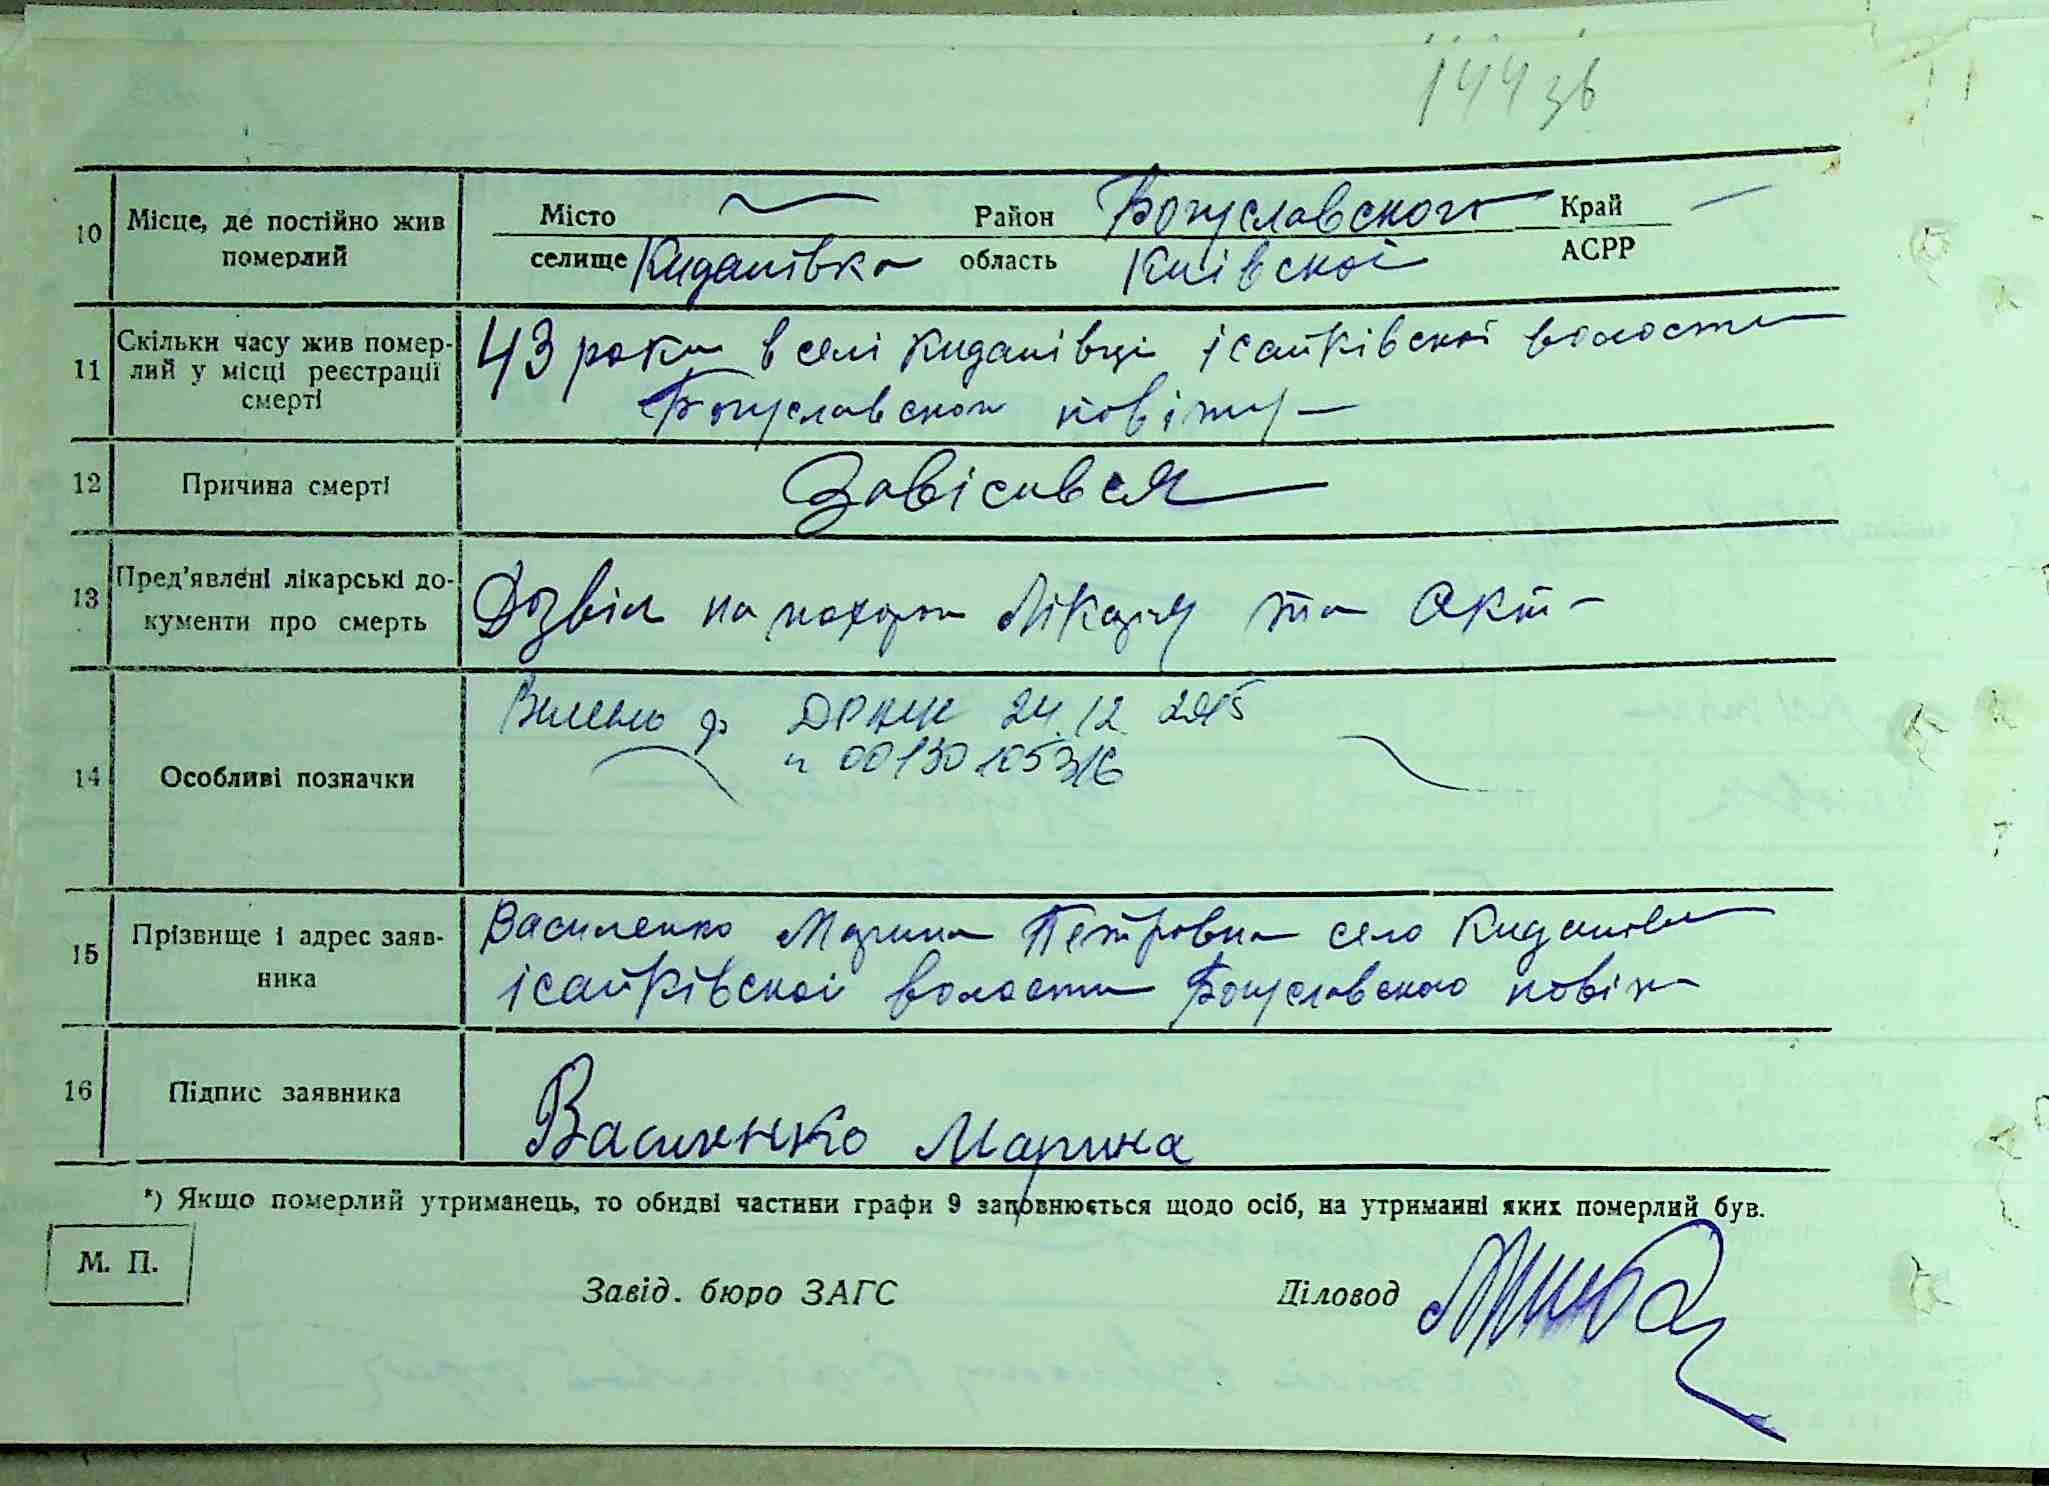 144 зв
10 Місце, де постійно жив померлий
Місто Район Богуславского Край
селище Киданівка область Київскої АСРР
11 Скільки часу жив помер-
лий у місці реєстрації
смерті
43 роки в селі Киданівці ісайківскої волости
Богуславского повіту
12 Причина смерті
Завісився
13 Пред'явлені лікарські до-
кументи про смерть
Дозвіл на похорон Лікаря та Акт
14 Особливі позначки
до ДРАЦС 24.12.2015
00130105316
15 Прізвище і адрес заяв-
ника
Василенко Марина Петровна село Киданівка
ісайківскої волости Богуславского повіту
16 Підпис заявника
Василенко Марина
*) Якщо померлий утриманець, то обидві частини графи 9 заповнюється щодо осіб, на утриманні яких померлий був.
М. П.
Завід. бюро ЗАГС Діловод